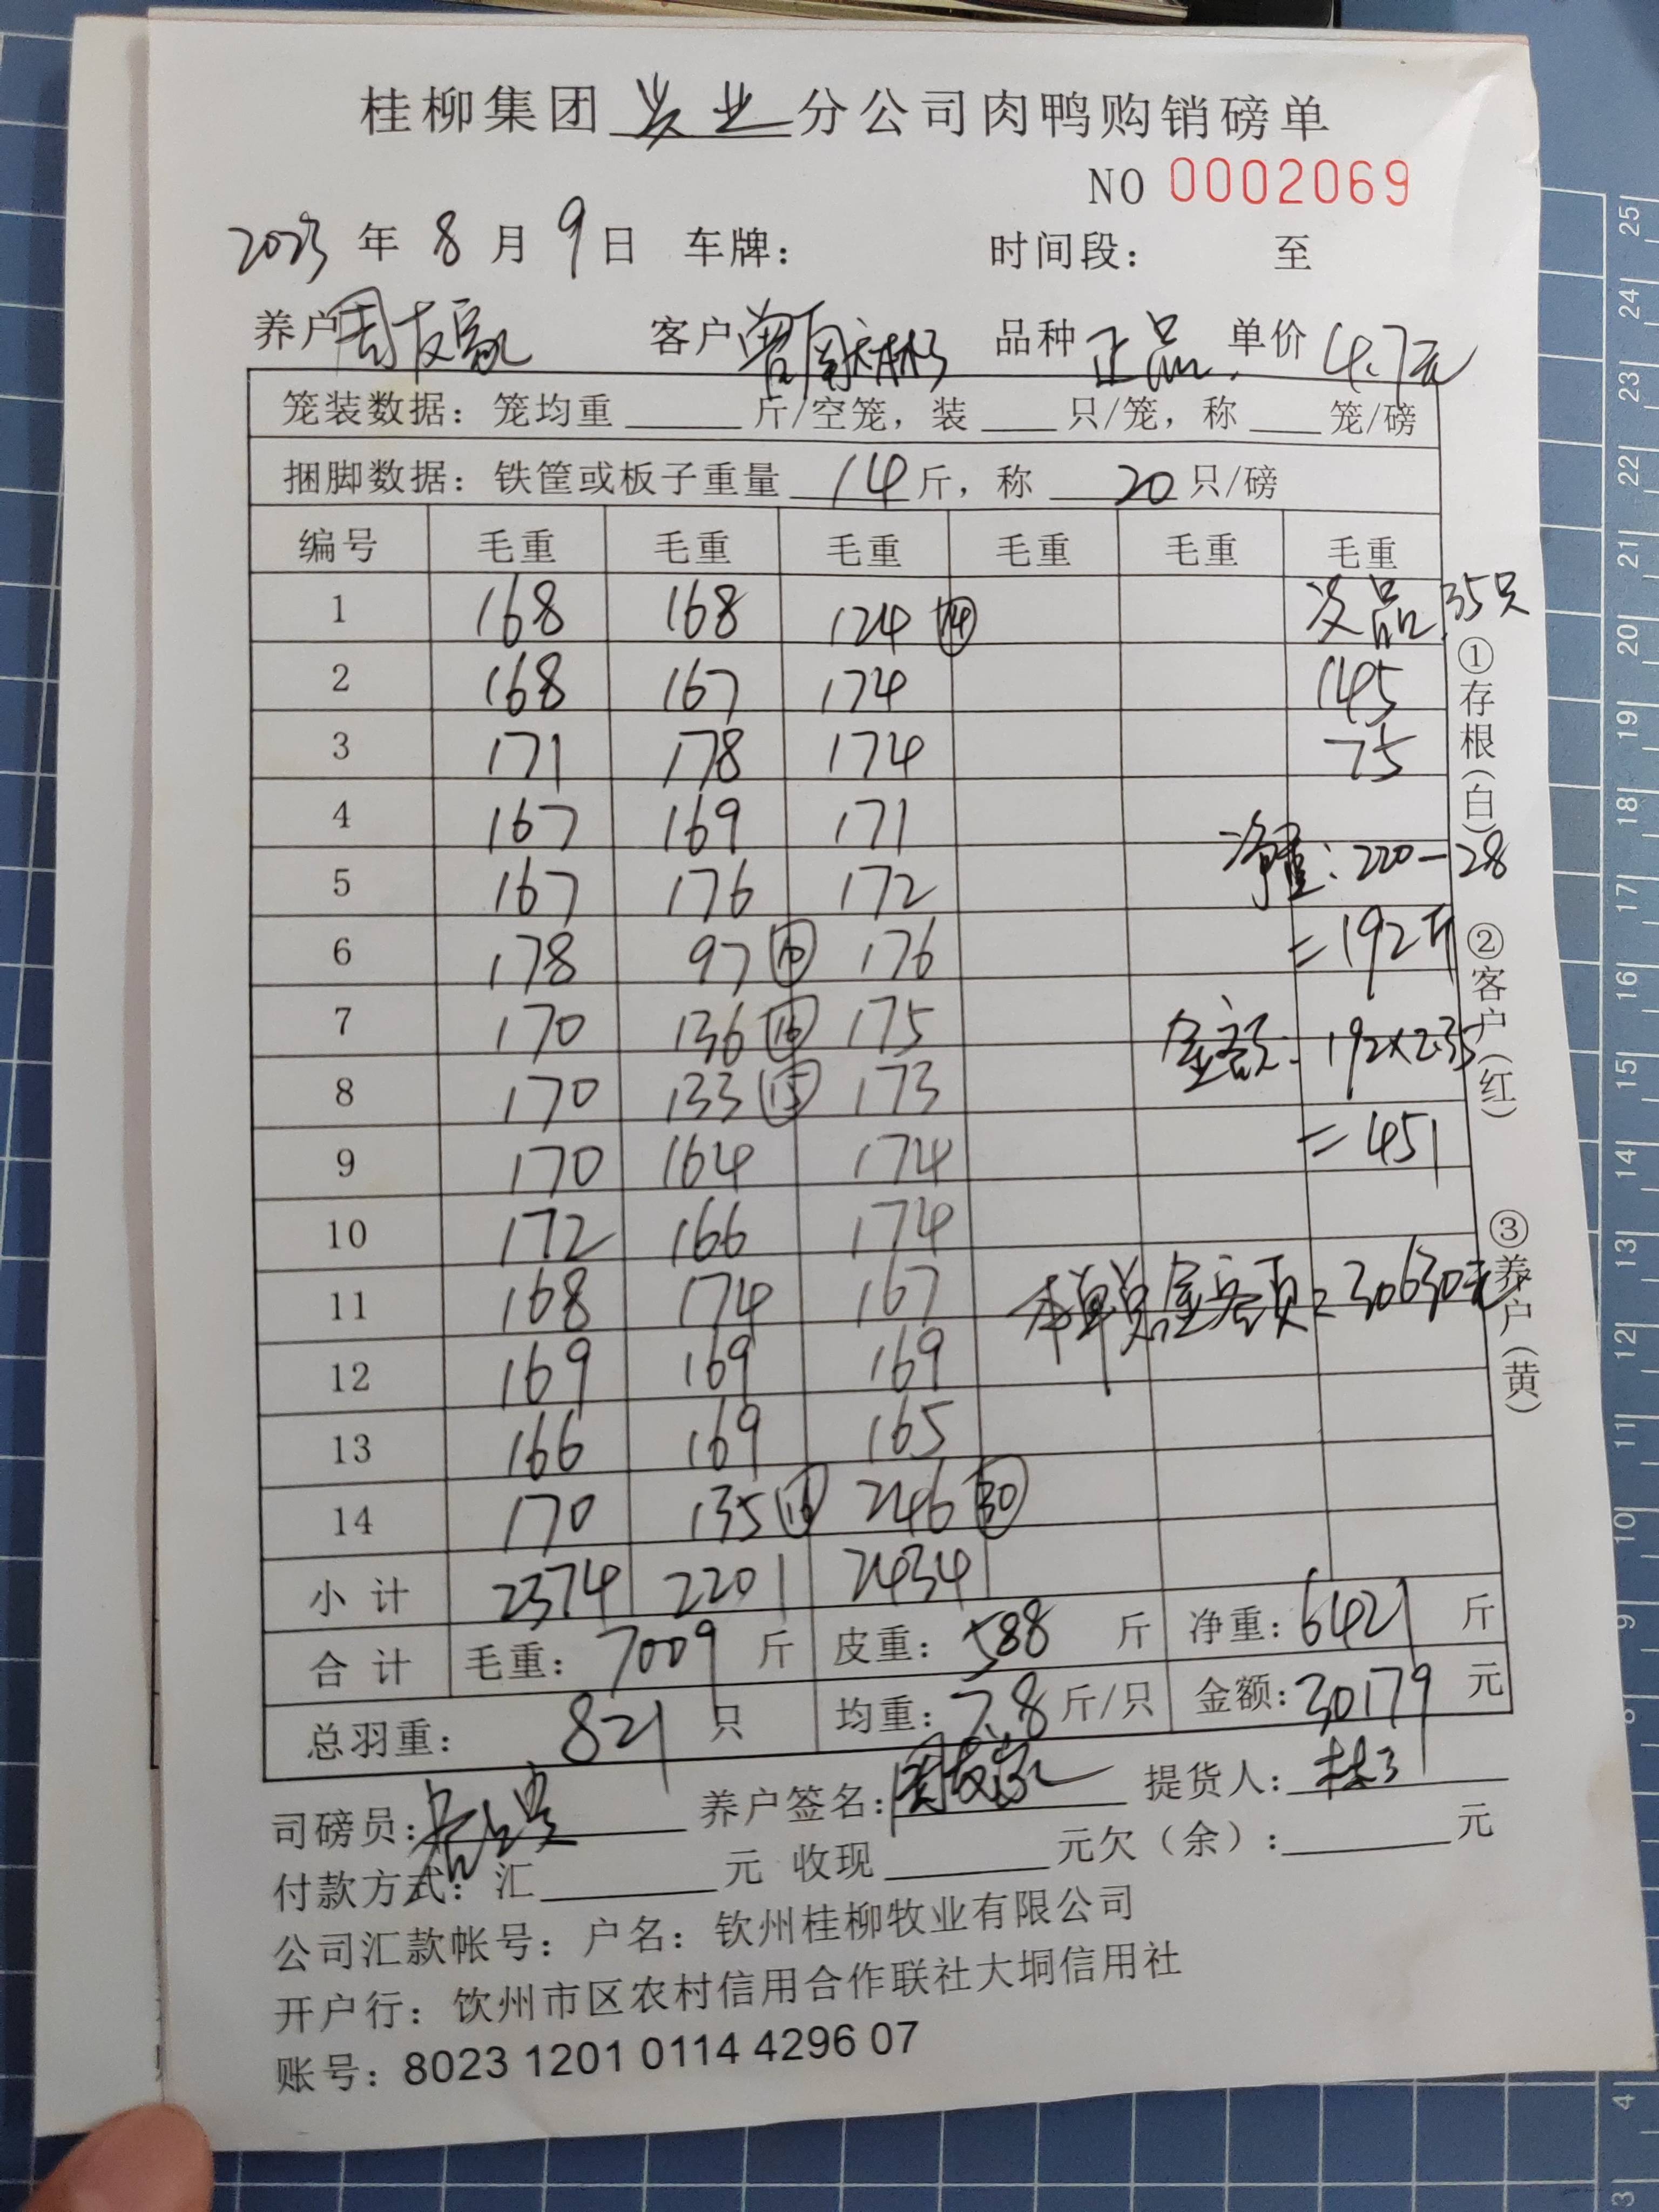 桂柳集团 兴业 分公司肉鸭购销磅单
NO 0002069
2023 年 8 月 9 日 车牌: 时间段: 至
养户 周友家 客户 品种 正品. 单价 4.7元
笼装数据: 笼均重 斤/空笼, 装 只/笼, 称 笼/磅
捆脚数据: 铁筐或板子重量 14 斤, 称 20 只/磅
编号 毛重 毛重 毛重 毛重 毛重 毛重
1 168 168 124 14 次品 35只
2 168 167 174 145
3 171 178 174 75
4 167 169 171
5 167 176 172 净重: 220-28
6 178 97 10 176 =192斤
7 170 136 16 175 金额: 192x2.35
8 170 133 15 173
9 170 164 174 =451
10 172 166 174
11 168 174 167 本单总金额: 30630元
12 169 169 169
13 166 169 165
14 170 135 16 246 30
小计 2374 2201 2434
合计 毛重: 7009 斤 皮重: 588 斤 净重: 6421 斤
总羽重: 821 只 均重: 7.8 斤/只 金额: 30179 元
司磅员: 养户签名: 周友家 提货人:
付款方式: 汇 元 收现 元欠(余): 元
公司汇款帐号: 户名: 钦州桂柳牧业有限公司
开户行: 饮州市区农村信用合作联社大垌信用社
账号: 8023 1201 0114 4296 07
①存根(白) ②客户(红) ③养户(黄)
25
24
23
22
21
20
19
18
17
16
15
14
13
12
11
10
9
8
4
3